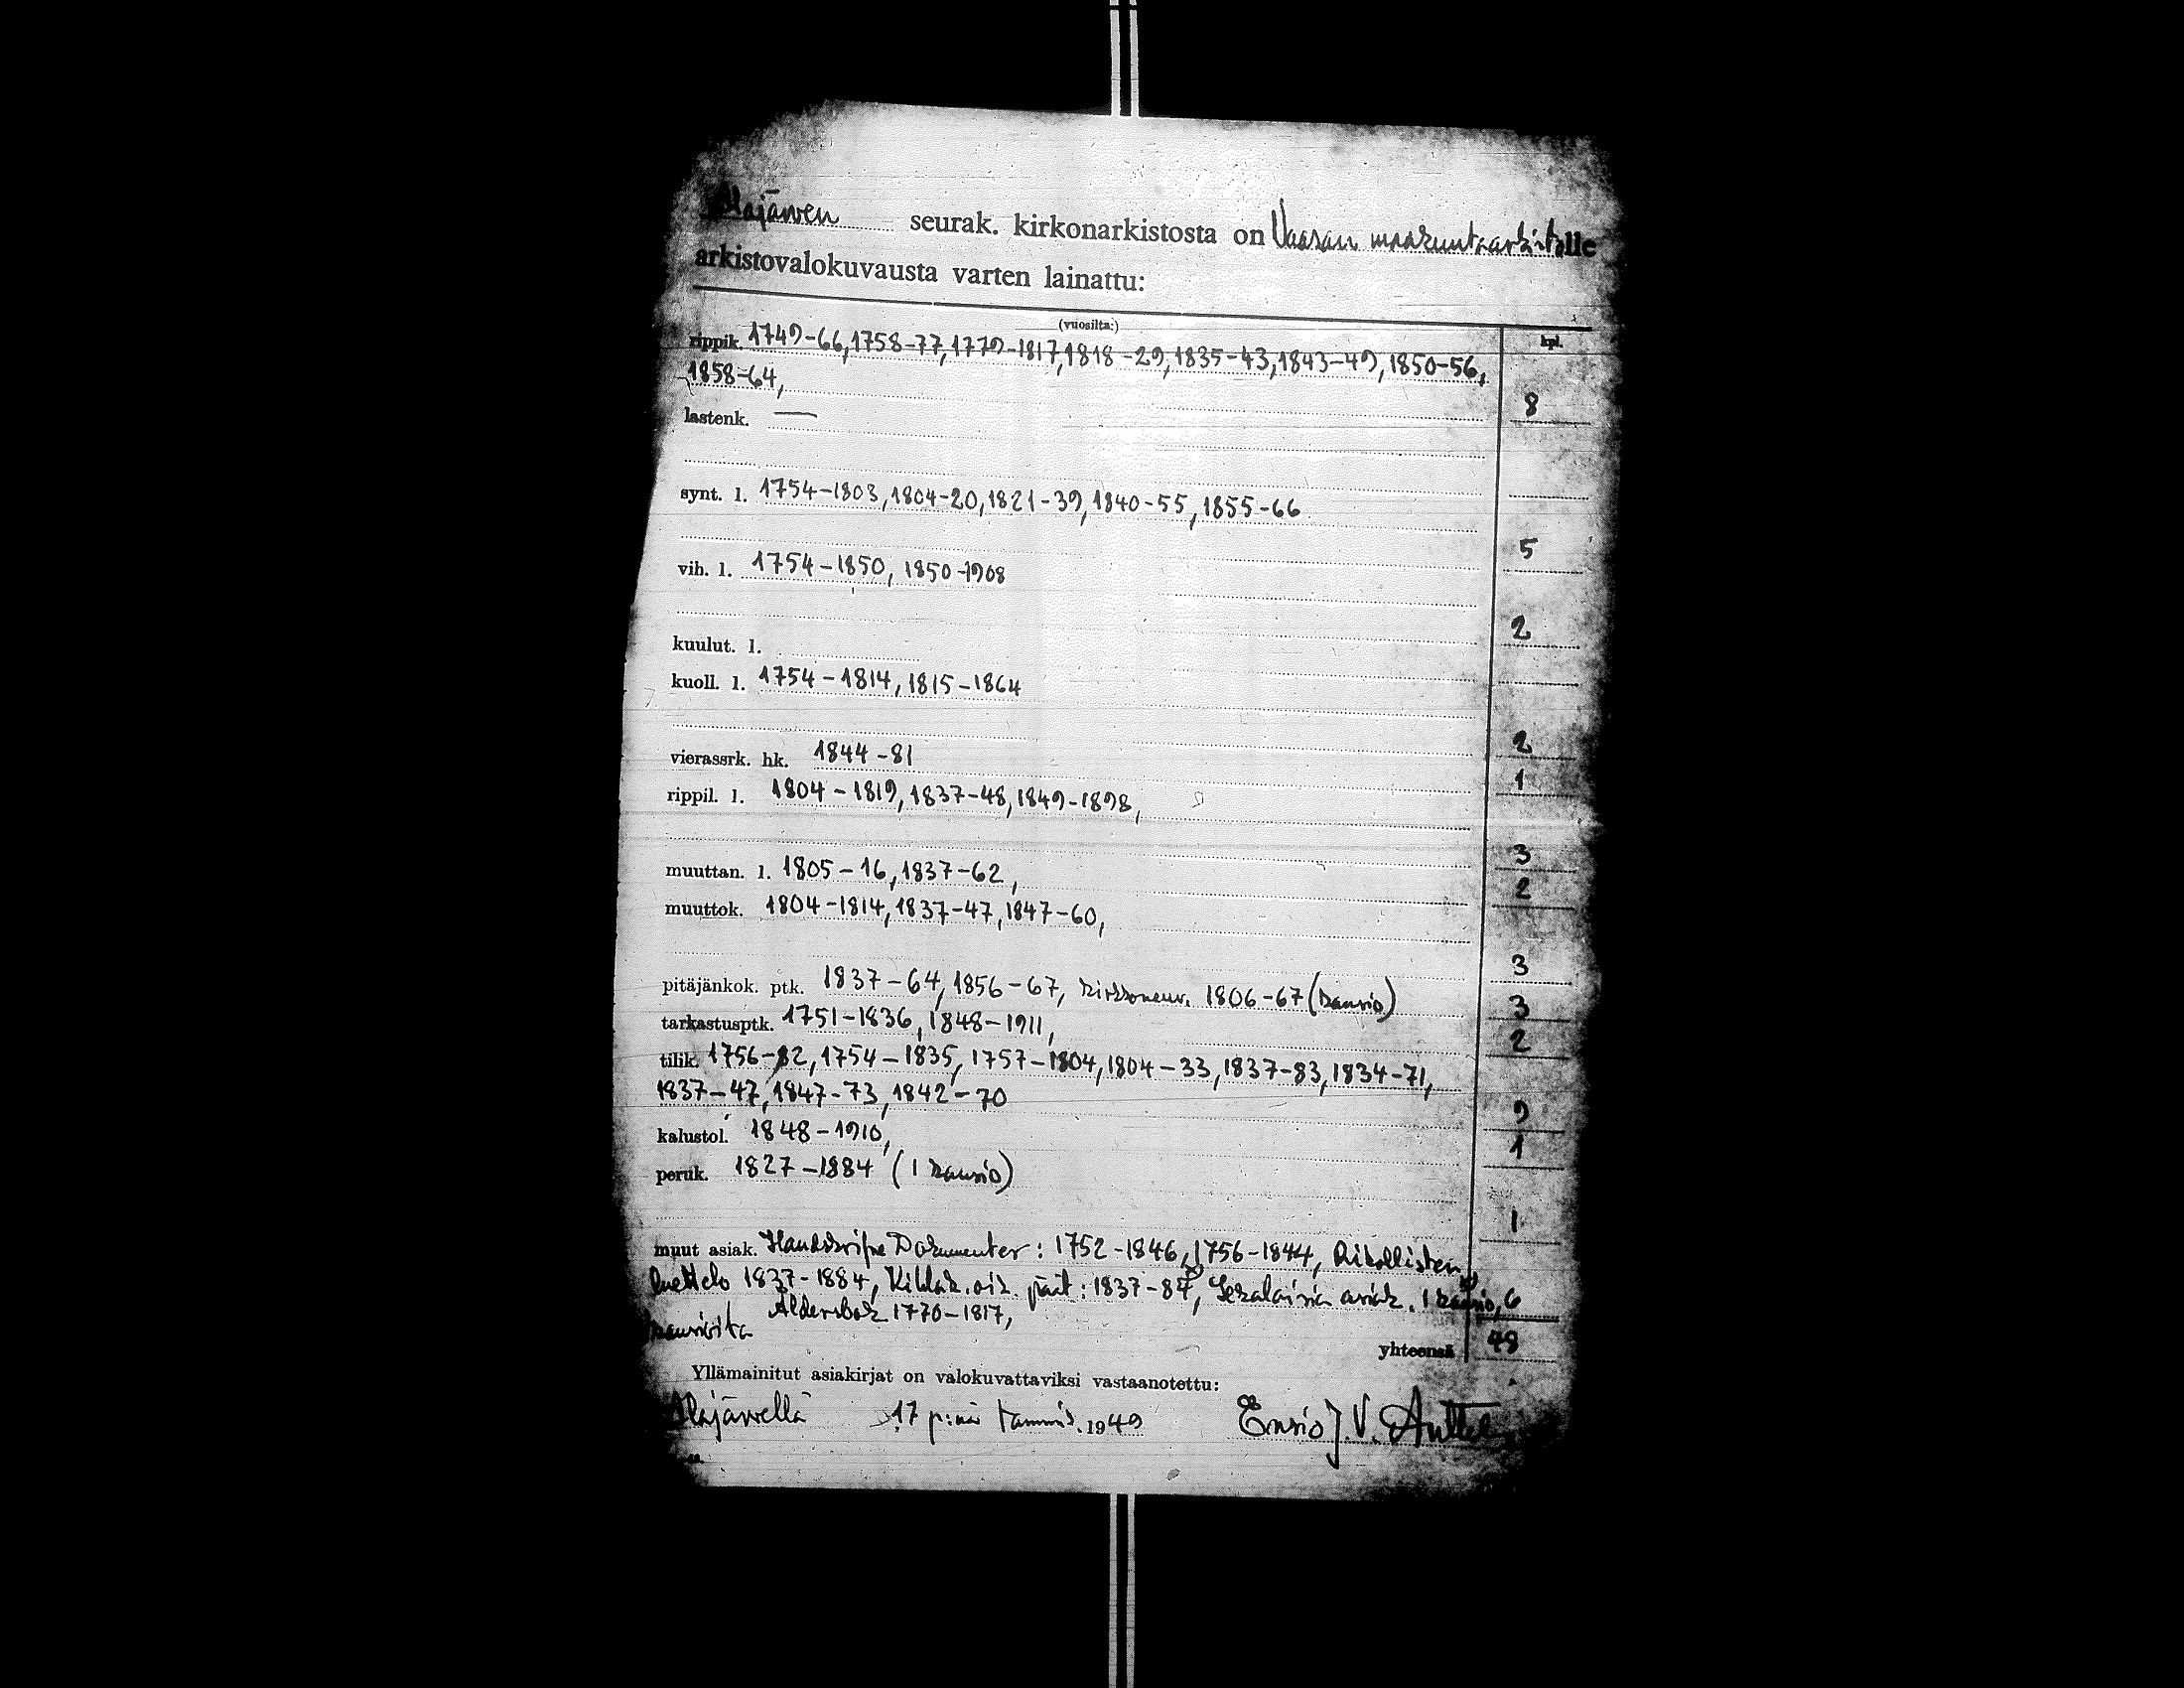 Alajärven seurak. kirkonarkistosta on Vaasan maakunta-arkistolle
arkistovalokuvausta varten lainattu:
(vuosilta:) kpl.
rippik. 1749-66, 1758-77, 1779-1817, 1818-29, 1835-43, 1843-49, 1850-56,
1858-64, 8
lastenk. —
synt. l. 1754-1803, 1804-20, 1821-39, 1840-55, 1855-66
5
vih. l. 1754-1850, 1850-1908
2
kuulut. l.
kuoll. l. 1754-1814, 1815-1864
2
vierassrk. hk. 1844-81 1
rippil. l. 1804-1819, 1837-48, 1849-1898,
3
muuttan. l. 1805-16, 1837-62, 2
muuttok. 1804-1814, 1837-47, 1847-60,
3
pitäjänkok. ptk. 1837-64, 1856-67, kirkkoneuv. 1806-67 (kansio) 3
tarkastusptk. 1751-1836, 1848-1911, 2
tilik. 1756-82, 1754-1835, 1757-1804, 1804-33, 1837-83, 1834-71,
1837-47, 1847-73, 1842-70 9
kalustol. 1848-1910, 1
peruk. 1827-1884 (1 kansio)
1
muut asiak. Dokumenter: 1752-1846, 1756-1844, Rikollisten
luettelo 1837-1884, Kihlak. oik. päät: 1837-84, Sekalaisia asiak. 1 kansio, 6
kansiota Åldersbok 1770-1817,
yhteensä 48
Yllämainitut asiakirjat on valokuvattaviksi vastaanotettu:
Alajärvellä 17 p:nä tammik. 1949 Ensio J. V. Anttila